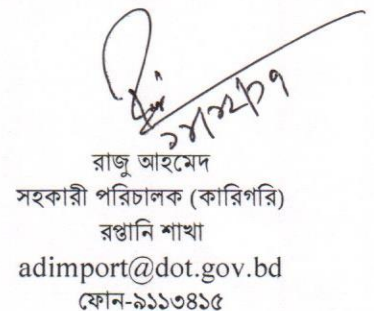 রাজু আহমেদ
সহকারী পরিচালক (কারিগরি)
রপ্তানি শাখা
adimport@dot.gov.bd
ফোন-৯১১৩৪১৫